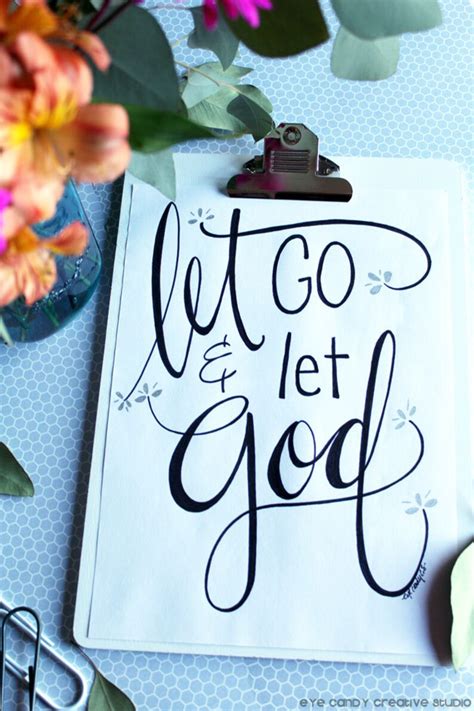 let GO
& let
God
EYE CANDY CREATIVE STUDIO